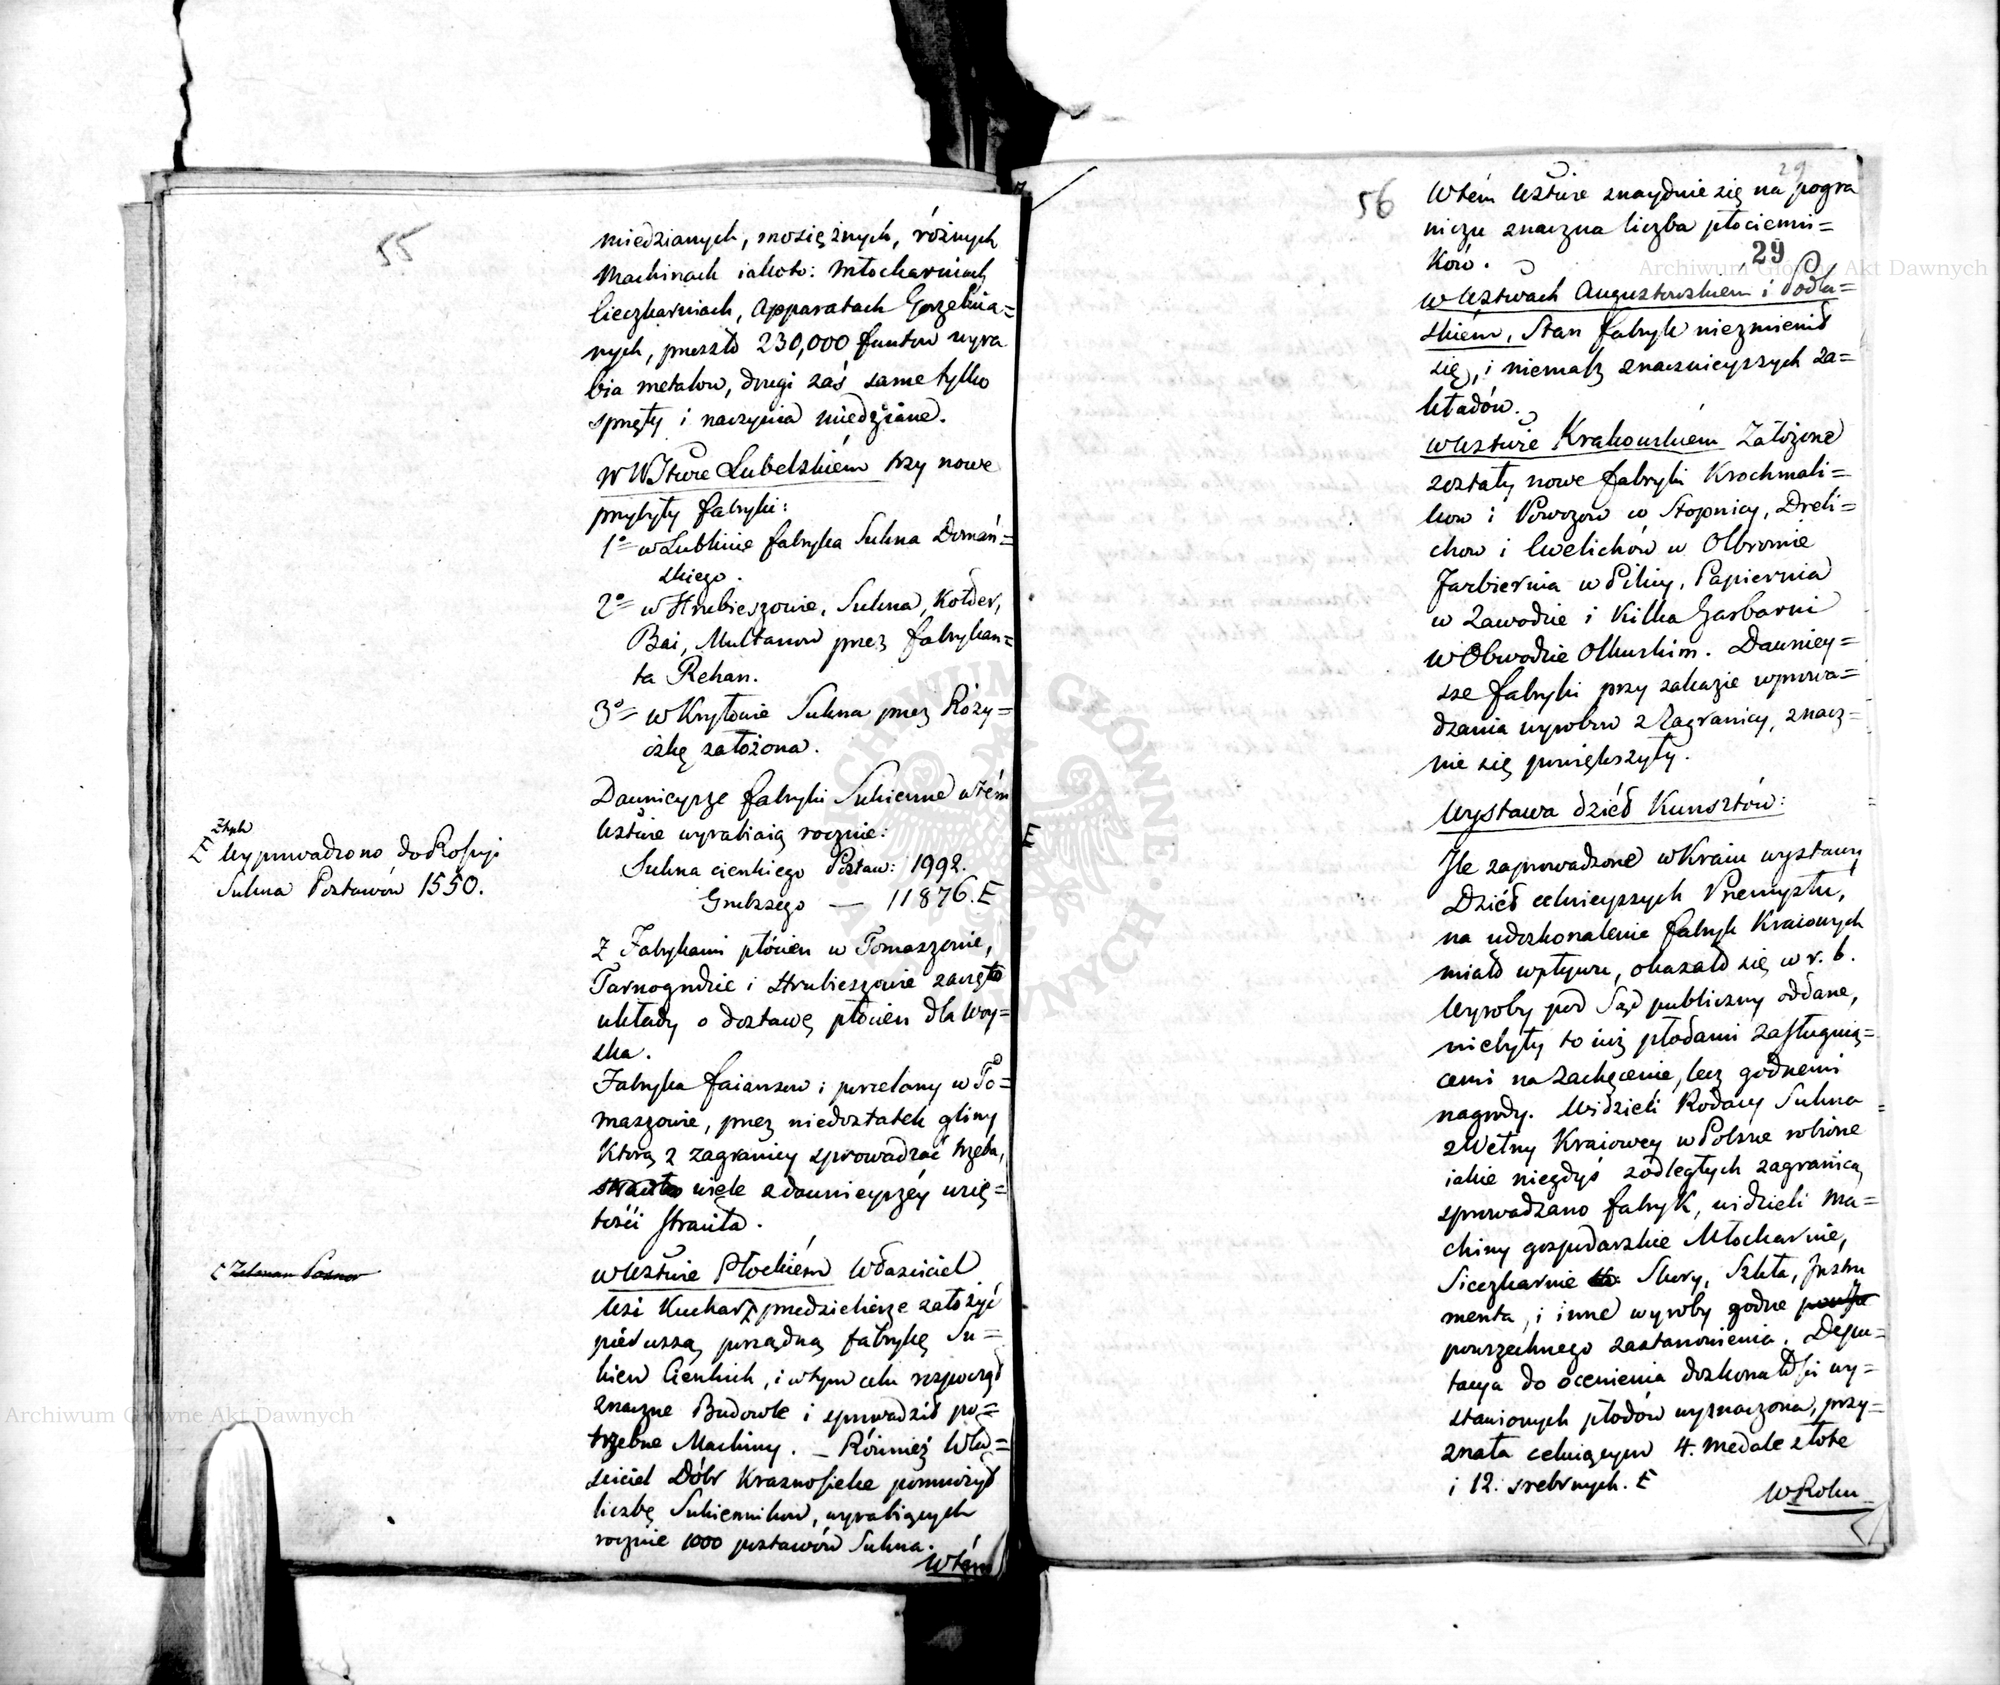 55
miedzianych, mosiężnych, różnych
Machinach iakoto: Młocharniach
Sieczkarniach, Apparatach Gorzelnia=
nych, przeszło 230,000 funtow wyra
bia metalow, drugi zaś same tylko
sprzęty i naczynia miedziane.
W Wztwie Lubelskiém trzy nowe
przybyły fabryki:
1º= w Lublinie fabryka Sukna Domań=
skiego.
2º= w Hrubieszowie, Sukna, Kołder,
Bai, Multanow przez fabrykan=
ta Rehan.
3º= w Kryłowie Sukna przez Róży=
czkę założona.
Dawnieysze fabryki Sukienne w tém
Wztwie wyrabiaią rocznie:
Sukna cienkiego Postaw: 1992.
Grubszego — 11876. E
Ztych
E Wyprowadzono do Rossyi
Sukna Postawów 1550.
Z Fabrykami płócien w Tomaszowie,
Tarnogrodzie i Hrubieszowie zawarto
układy o dostawę płócien dla Woy=
ska.
Fabryka faiansow i porcelany w To=
maszowie, przez niedostatek gliny
Którą z zagranicy sprowadzać trzeba,
straciła wiele z dawnieyszéy wzię=
tości straciła.
C Zelman Posner
w Wztwie Płockiém Właściciel
Wsi Kuchary przedsiebierze założyć
pierwszą porządną fabrykę Su=
kien Cienkich, i w tym celu rozpoczął
znaczne Budowle i sprowadził po=
trzebne Machiny. — Również Wła=
ściciel Dóbr Krasnosielce pomnożył
liczbę Sukiennikow, wyrabiących
rocznie 1000 postawów Sukna.
W tém
56
29
29
W tém Wztwie znayduie się na pogra
niczu znaczna liczba płócienni=
ków.
w Wztwach Augustowskiem i Podla=
skiém, Stan fabryk niezmienił
się, i niemasz znacznieyszych za=
kładów.
w Wztwie Krakowskiem Założone
zostały nowe fabryki Krochmali=
kow i Powozow w Stopnicy, Dreli=
chow i Cwelichów w Olbromie
Farbiernia w Pilicy, Papiernia
w Zawodzie i Kilka Garbarni
w Obwodzie Olkuskim. Dawniey=
sze fabryki przy zakazie wprowa=
dzania wyrobow z Zagranicy, znacz=
nie się powiększyły.
Wystawa dzieł Kunsztów:
Ile zaprowadzone w Kraiu wystawy
Dzieł celnieyszych Przemysłu,
na udoskonalenie fabryk Kraiowych
miało wpływu, okazało się w r. b.
Wyroby pod Sąd publiczny oddane,
niebyły to iuż płodami zasługuią=
cemi na Zachęcenie, lecz godnemi
nagrody. Widzieli Rodacy Sukna
z Wełny Kraiowey w Polsce robione
iakie niegdyś z odległych zagranicą
sprowadzano fabryk, widzieli Ma=
chiny gospodarskie Młocharnie,
Sieczkarnie Skóry, Szkła, Instru
menta, i inne wyroby godne
powszechnego zastanowienia. Depu=
tacya do ocenienia doskonałości wy=
stawionych płodów wyznaczona, przy=
znała celuiącym 4. medale złote
i 12. srebrnych. E
W Roku
E
Archiwum Główne Akt Dawnych
Archiwum Główne Akt Dawnych
ARCHIWUM GŁÓWNE AKT DAWNYCH